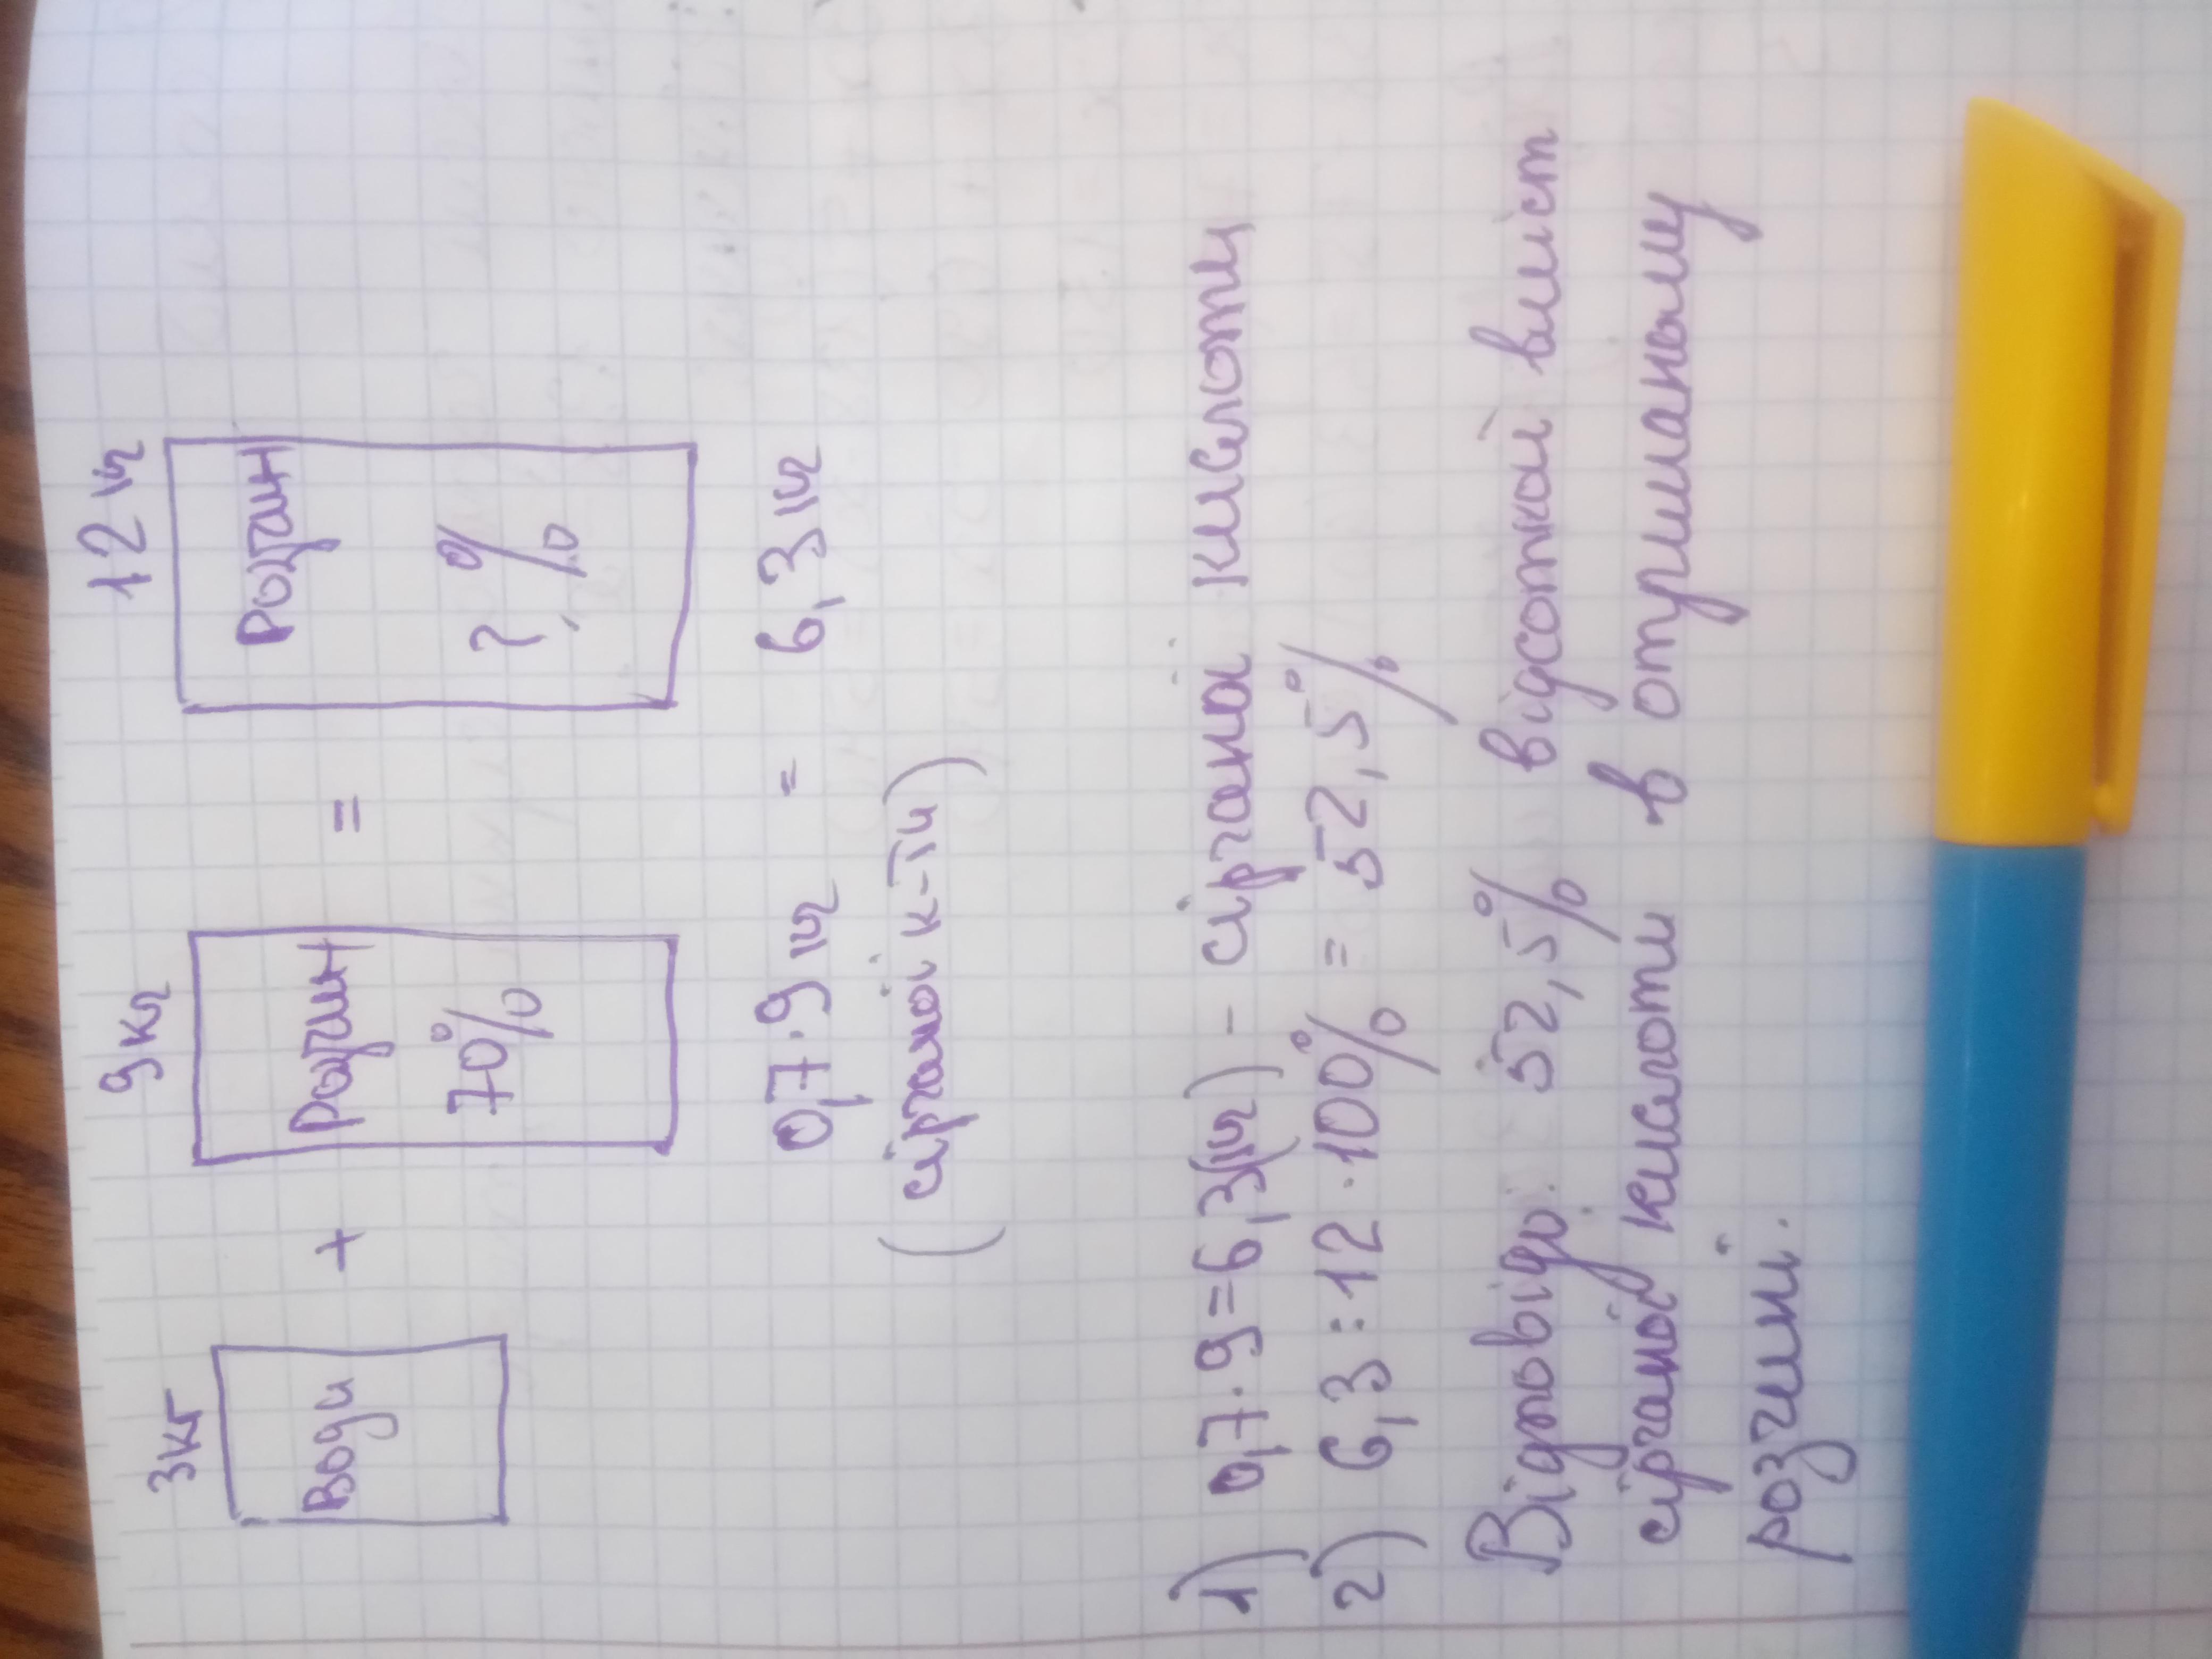 3кг 9кг 12кг
Води + Розчин = Розчин
70% ?%
0,7·9кг = 6,3кг
(сірчаної к-ти)
1) 0,7·9=6,3(кг) - сірчаної кислоти
2) 6,3:12·100% = 52,5%
Відповідь: 52,5% відсоткой вміст
сірчаної кислоти в отриманому
розчині.